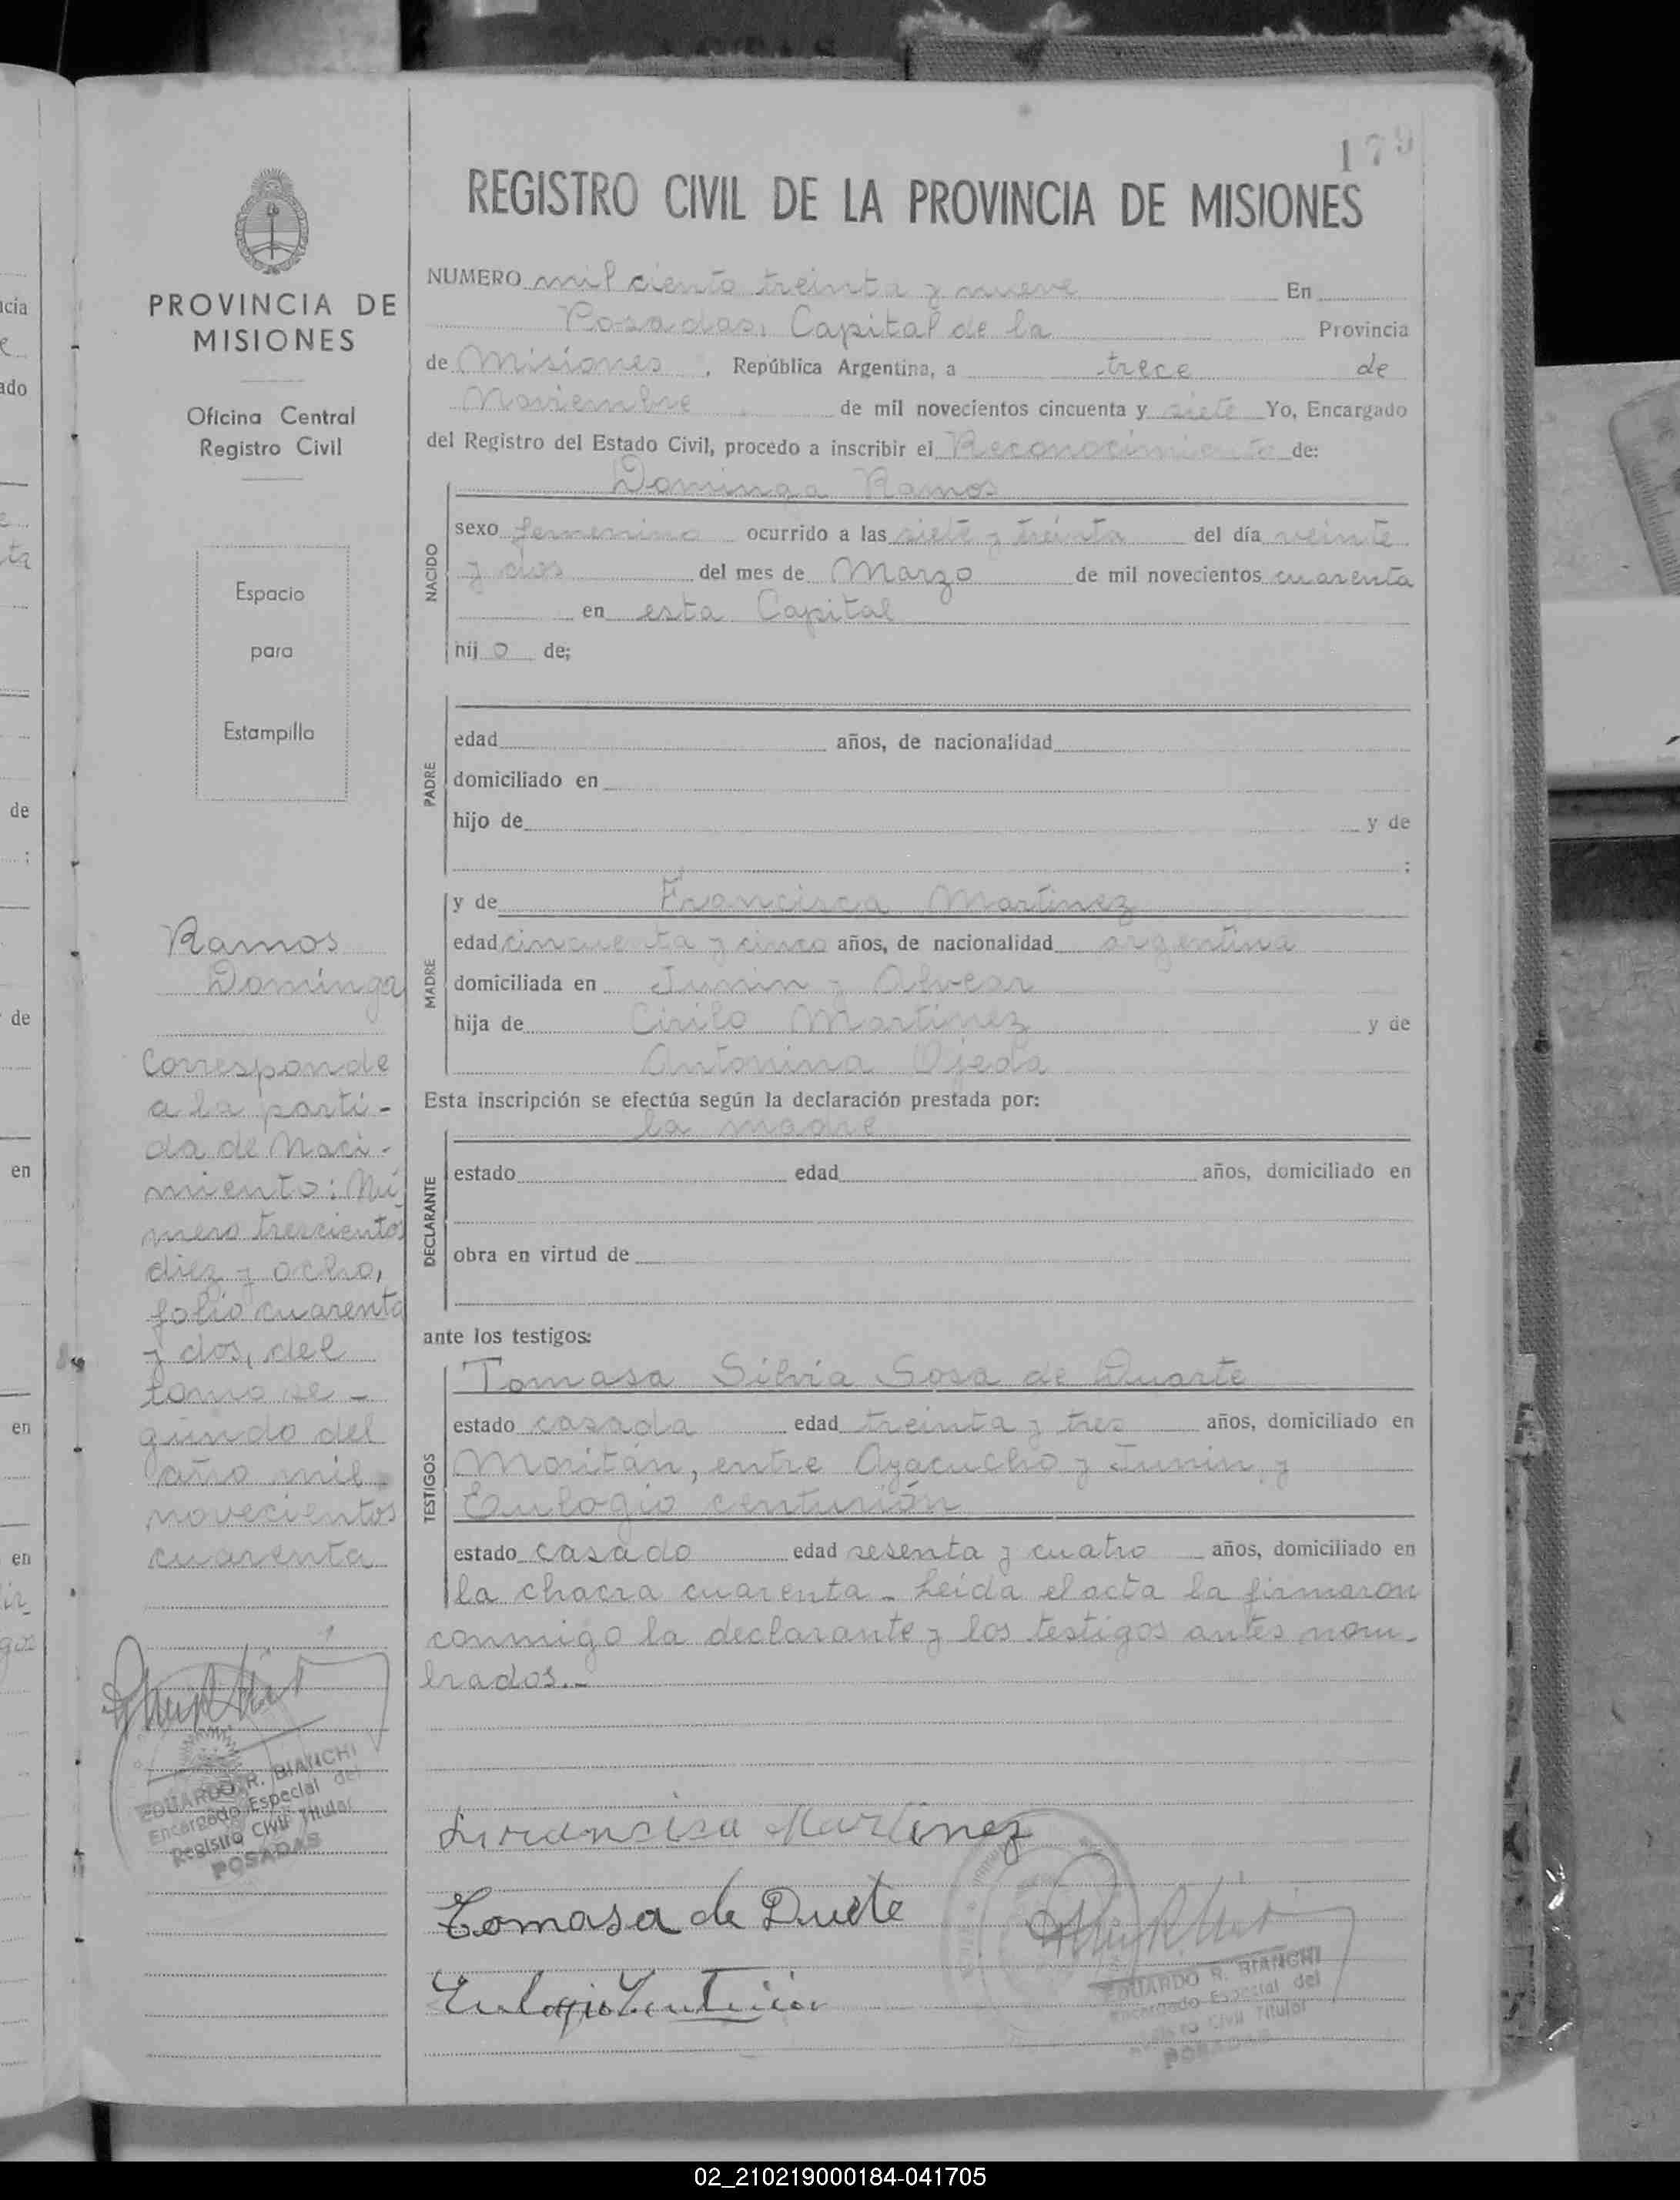 179
REGISTRO CIVIL DE LA PROVINCIA DE MISIONES
PROVINCIA DE
MISIONES
Oficina Central
Registro Civil
Espacio
para
Estampilla
Ramos
Dominga
Corresponde
a la parti-
da de Naci-
miento: Nú
mero trescientos
diez y ocho,
folio cuarenta
y dos, del
tomo se-
gundo del
año mil
novecientos
cuarenta
EDUARDO R. BIANCHI
Encargado Especial del
Registro Civil Titular
POSADAS
NUMERO mil ciento treinta y nueve En
Posadas, Capital de la Provincia
de Misiones, República Argentina, a trece de
Noviembre de mil novecientos cincuenta y siete Yo, Encargado
del Registro del Estado Civil, procedo a inscribir el Reconocimiento de:
NACIDO
Dominga Ramos
sexo femenino ocurrido a las siete y treinta del día veinte
y dos del mes de Marzo de mil novecientos cuarenta
en esta Capital
hij o de;
PADRE
edad años, de nacionalidad
domiciliado en
hijo de y de
;
MADRE
y de Francisca Martinez
edad cincuenta y cinco años, de nacionalidad argentina
domiciliada en Junin y Alvear
hija de Cirilo Martinez y de
Antonina Ojeda
Esta inscripción se efectúa según la declaración prestada por:
DECLARANTE
la madre
estado edad años, domiciliado en
obra en virtud de
ante los testigos:
TESTIGOS
Tomasa Silvia Sosa de Duarte
estado casada edad treinta y tres años, domiciliado en
Moritán, entre Ayacucho y Junin y
Eulogio centurión
estado casado edad sesenta y cuatro años, domiciliado en
la chacra cuarenta - Leida el acta la firmaron
conmigo la declarante y los testigos antes nom-
brados.-
Francisca Martinez
Tomasa de Duete
Eulogio Centurion
EDUARDO R. BIANCHI
Encargado Especial del
Registro Civil Titular
POSADAS
02_210219000184-041705